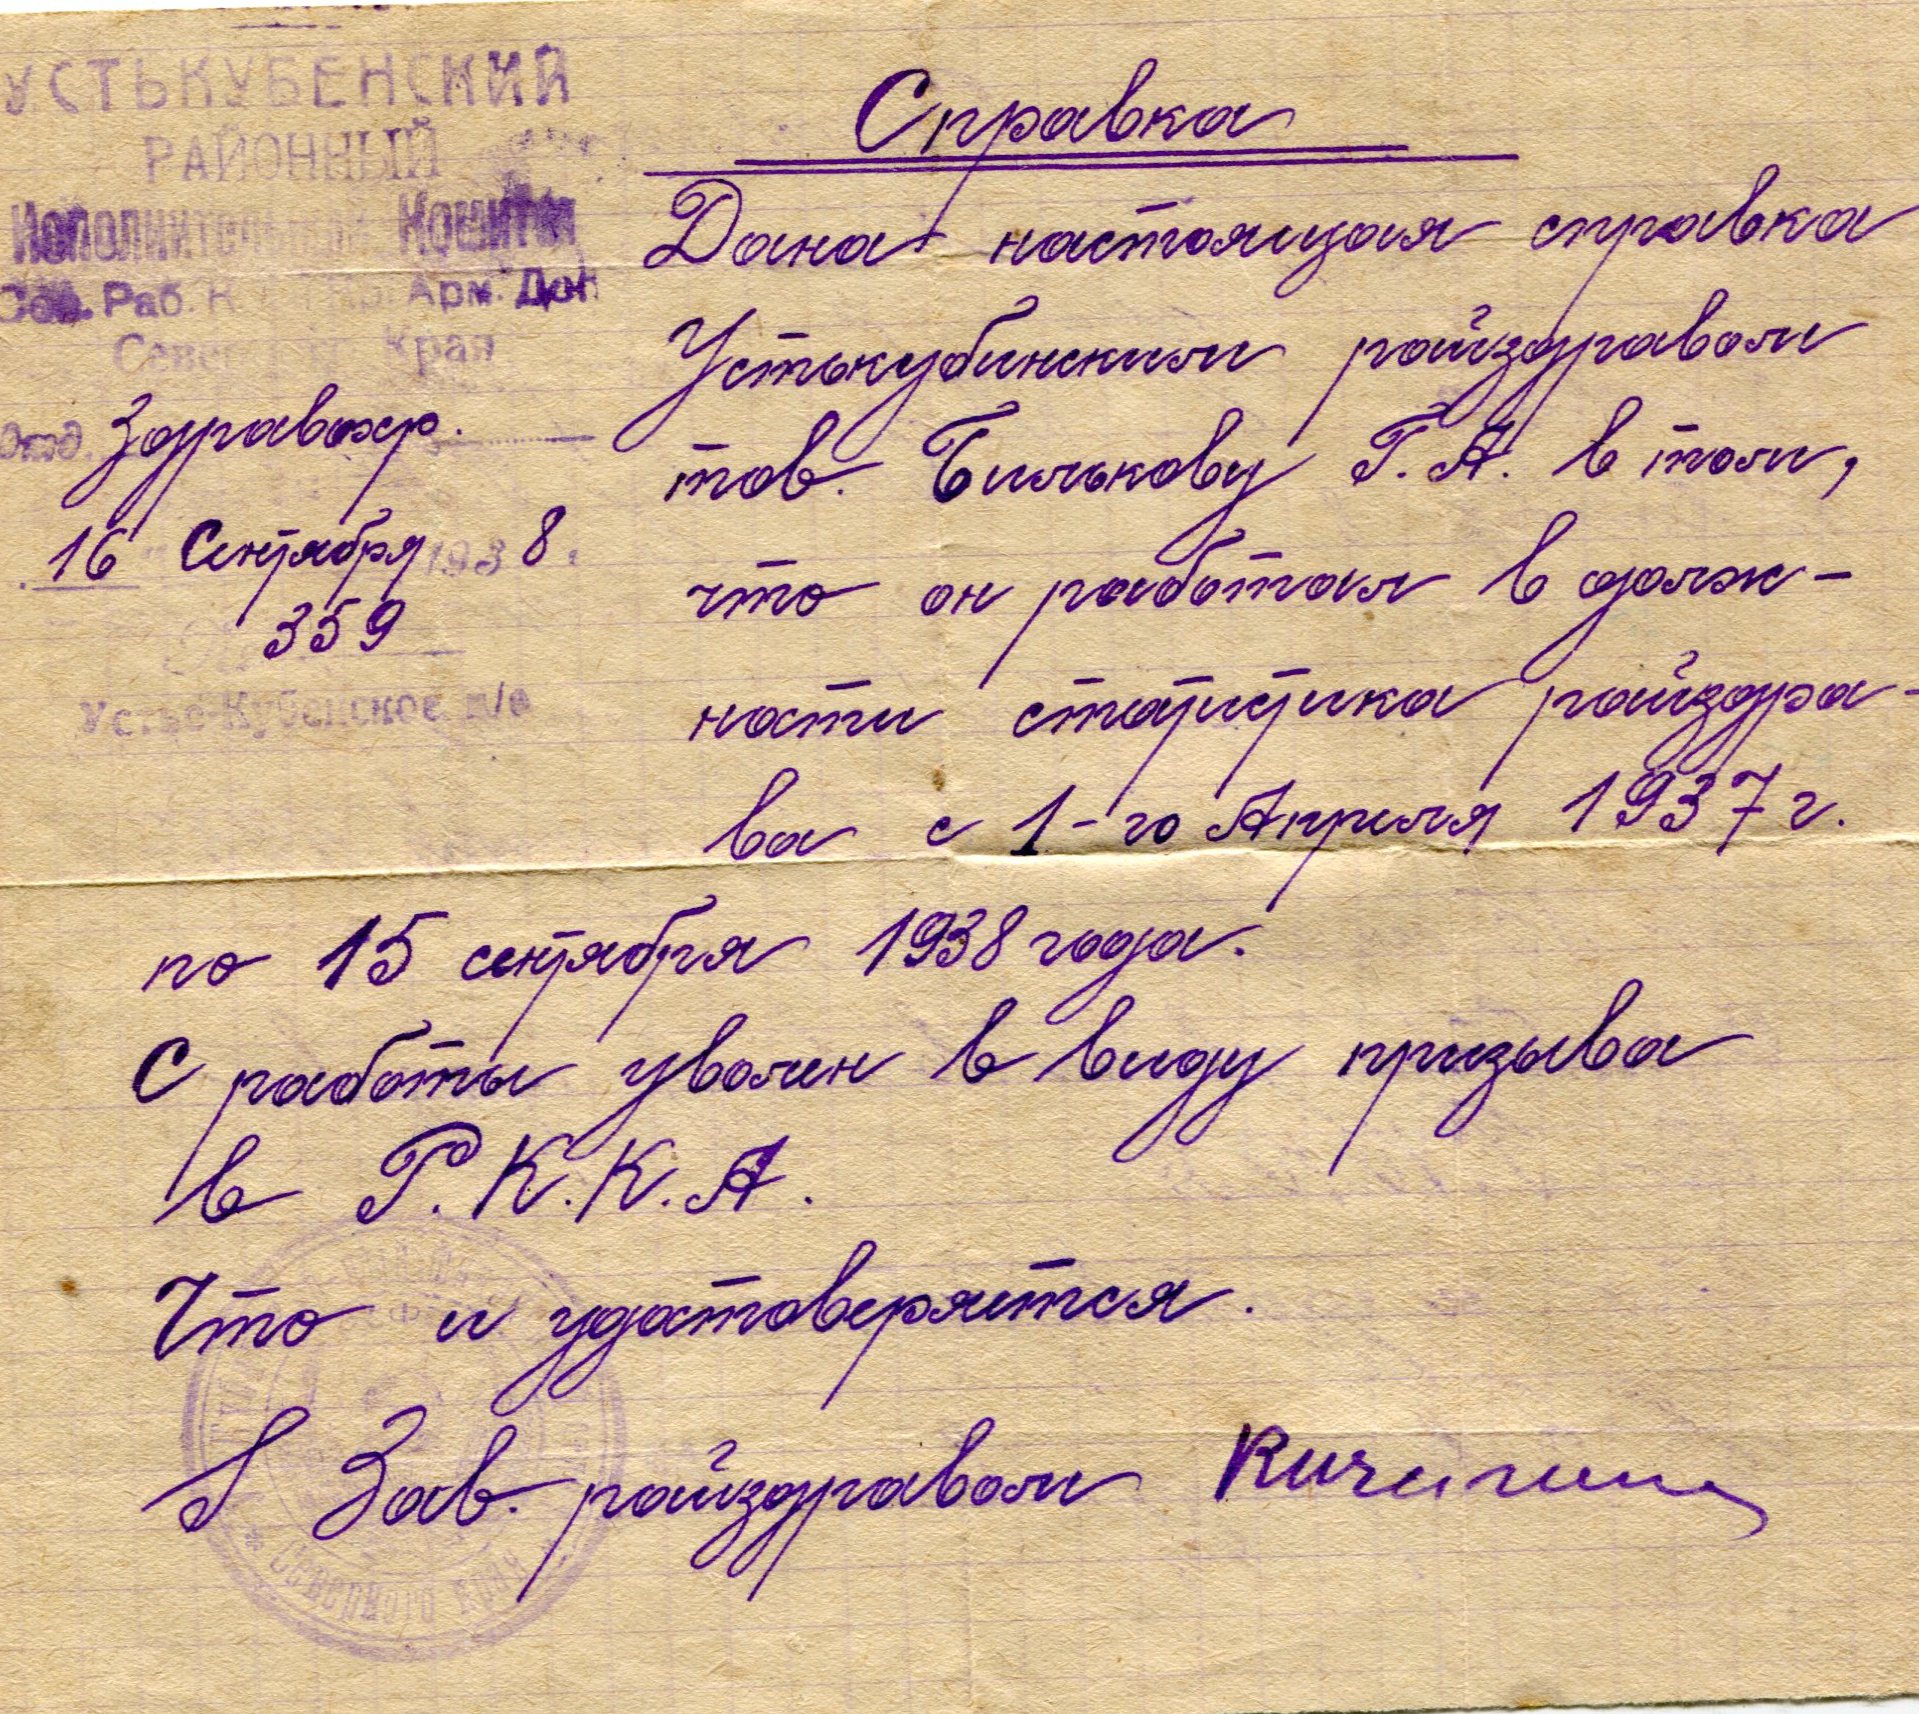 УСТЬКУБЕНСКИЙ
РАЙОННЫЙ
Исполнительный Комитет
Сов. Раб. К Кр. Арм. Деп
Северного Края
Отд. Здравохр.
16 Сентября 1938.
359
Устье-Кубенское п/о
Справка
Дана настоящая справка
Устькубинским райздравом
тов. Билькову Г. А. в том,
что он работал в долж-
ности статистика райздра-
ва с 1-го Апреля 1937 г.
по 15 сентября 1938 года.
С работы уволен в виду призыва
в Р. К. К. А.
Что и удостоверяется.
Зав. райздравом Кичигин
* Северного края